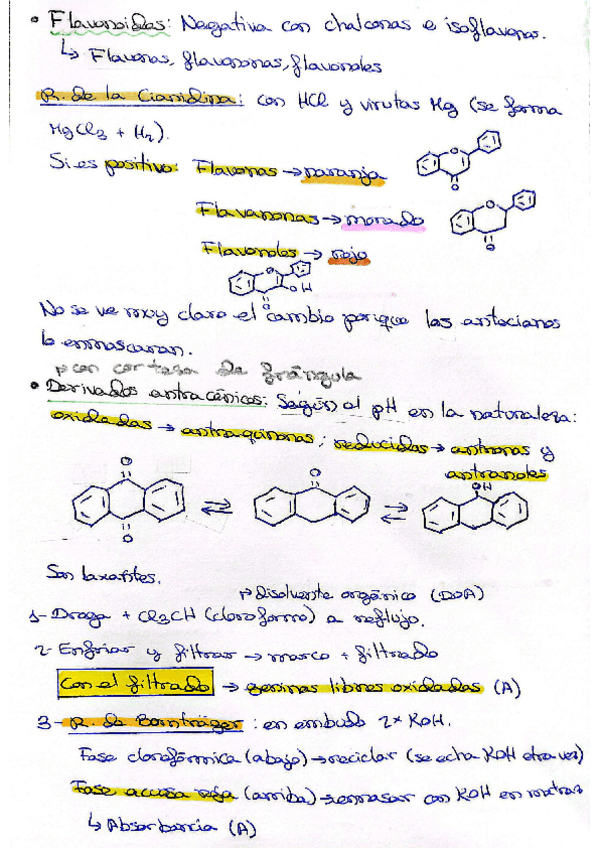 • Flavonoides: Negativa con chalconas e isoflavonas.
↳ Flavonas, flavononas, flavonoles
R. de la Cianidina: con HCl y virutas Mg (se forma
MgCl₃ + H₂).
Si es positivo: Flavonas → naranja
Flavanonas → morado
Flavonoles → rojo
No se ve muy claro el cambio porque las antocianos
lo enmascaran.
con corteza de frángula
• Derivados antracénicos: Según al pH en la naturaleza:
oxidadas → antraquinonas; reducidas → antronas y
antranoles
Son laxantes.
↱ Disolvente orgánico (DOA)
1- Droga + Cl₃CH (cloroformo) a reflujo.
2- Enfriar y filtrar → marco + filtrado
Con el filtrado → geninas libres oxidadas (A)
3- R. de Bornträger: en embudo 2x KOH.
Fase clorofórmica (abajo) → reciclar (se echa KOH otra vez)
Fase acuosa roja (arriba) → enrasar con KOH en matraz
↳ Absorbancia (A)